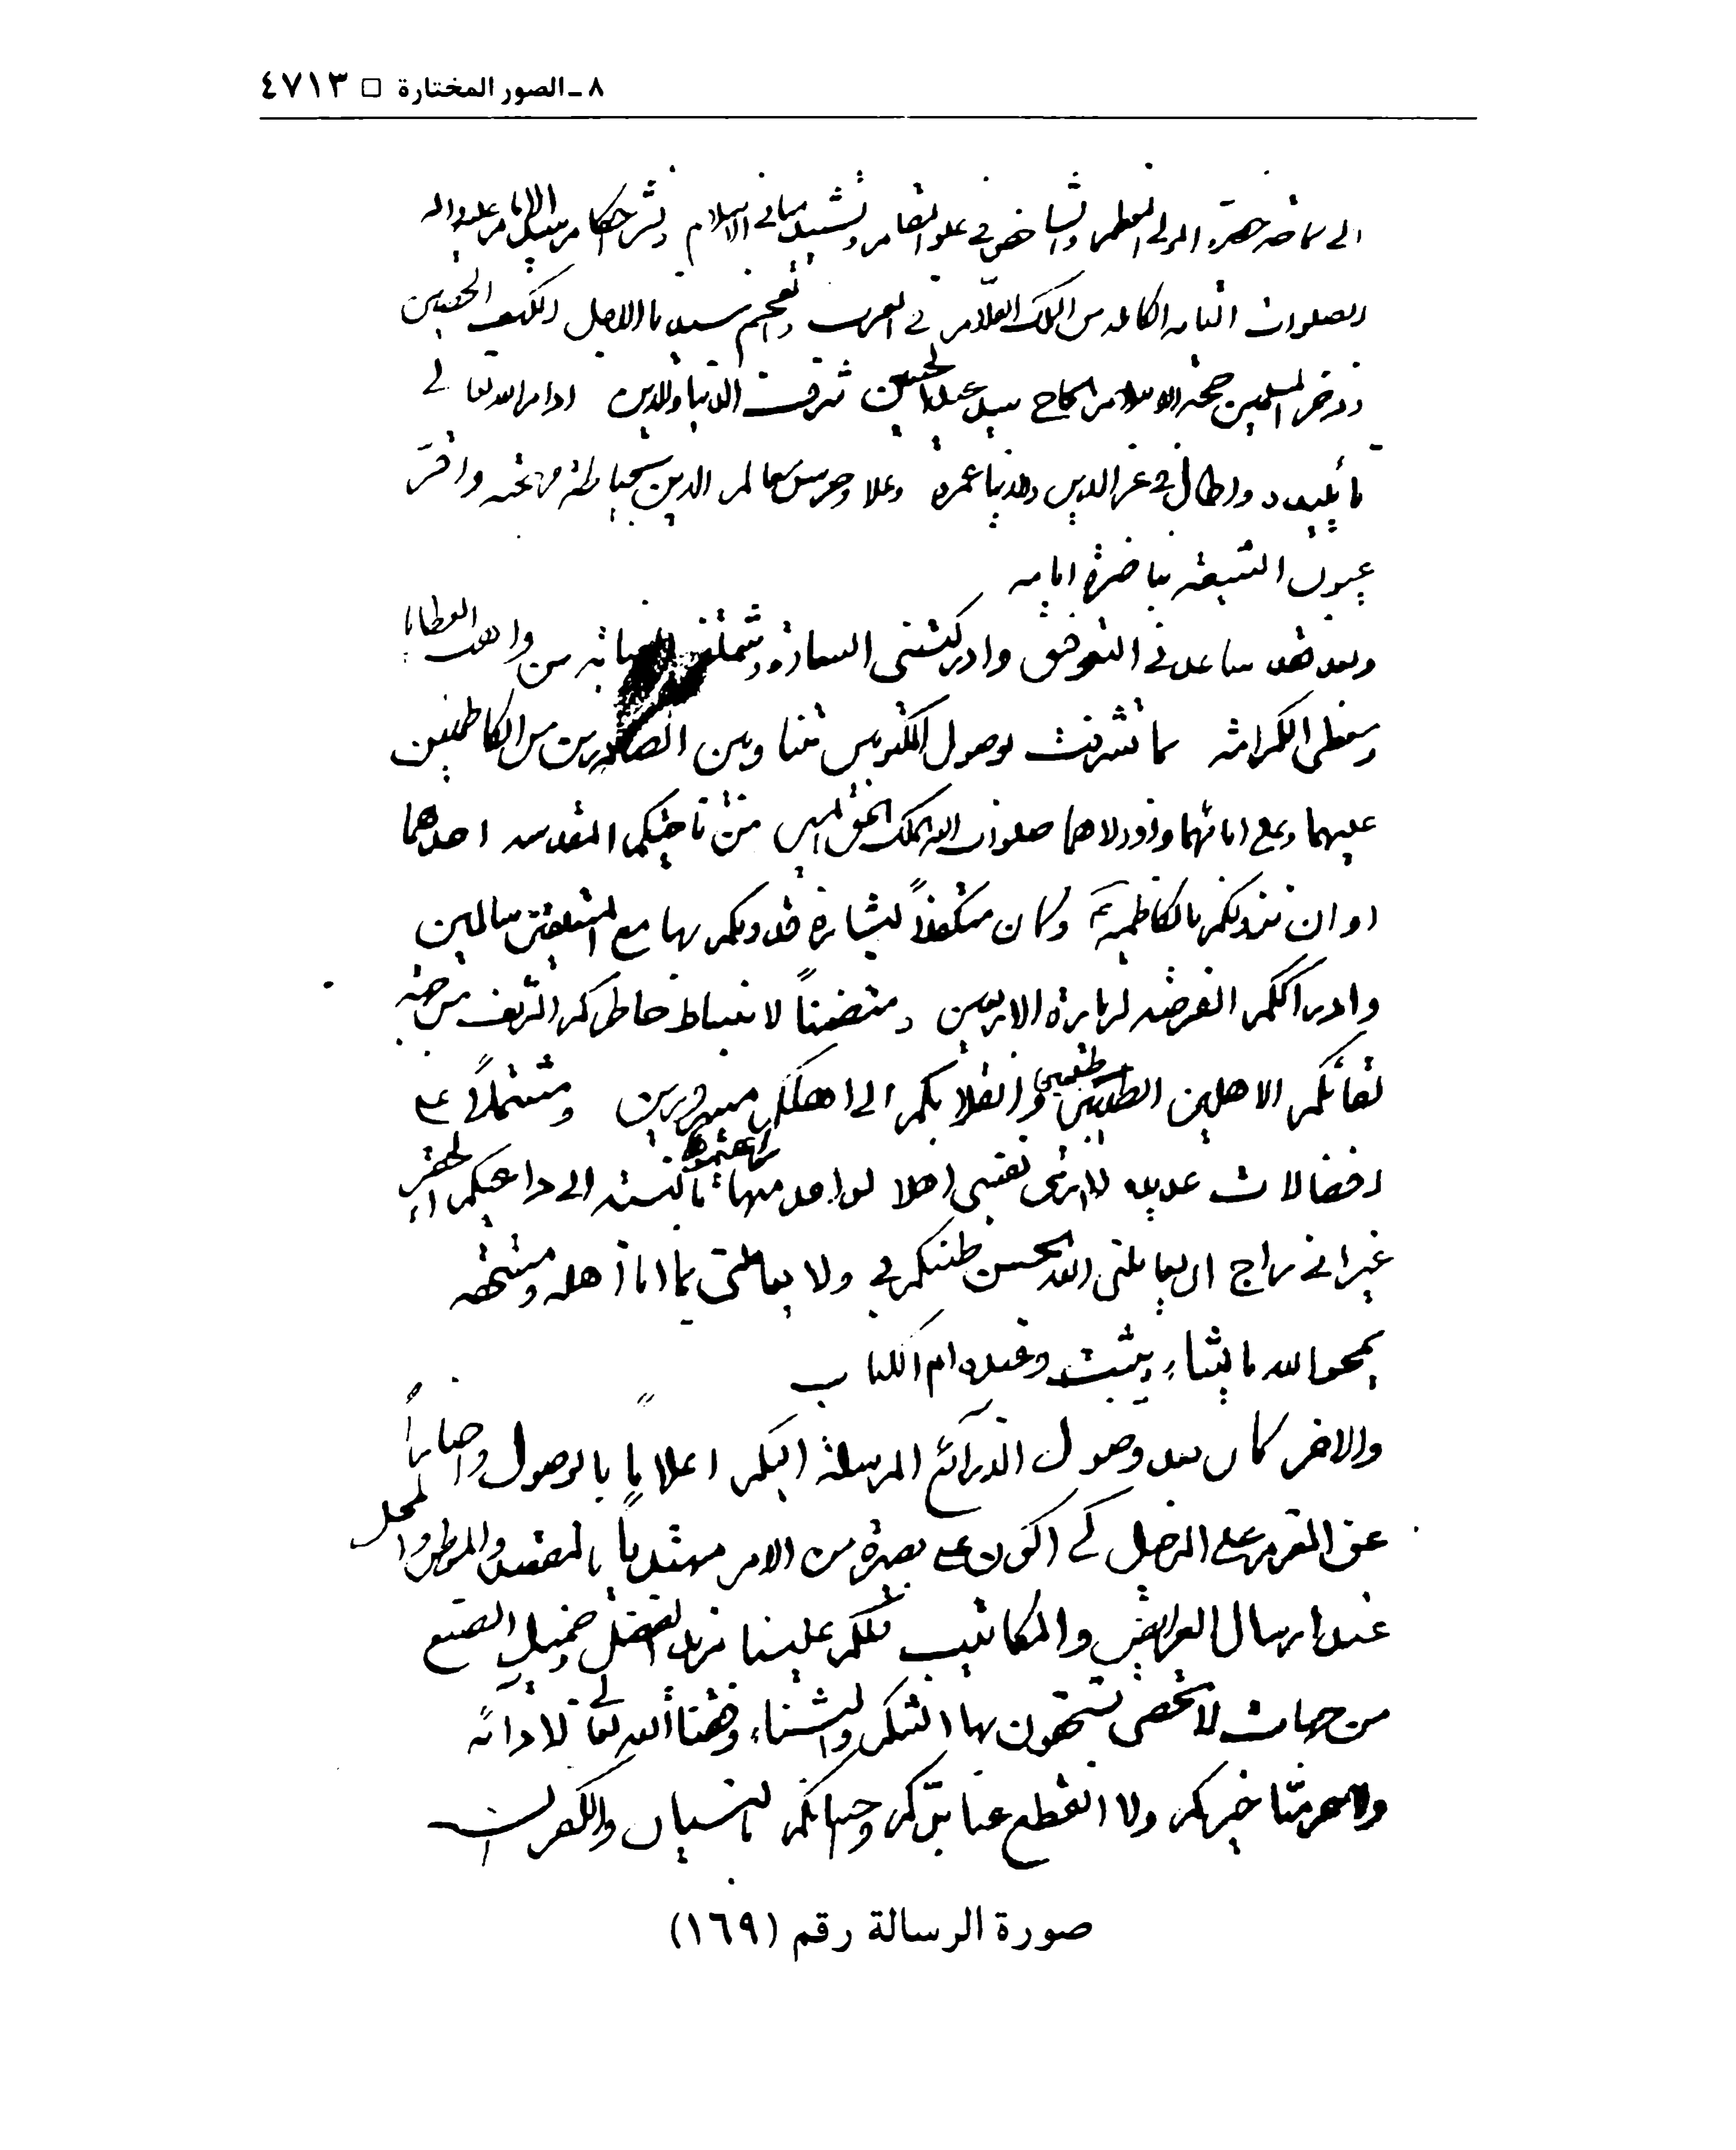 ٨ ـ الصور المختارة □ ٤٧١٣
الى حضرة المولى المعظم والشامخ في علو المقام وتشييد مباني الاسلام ونشر احكام سيد الانام عليه واله
الصلوات التامة الكاملة من الملك العلام في العرب والعجم سيدنا الاجل الكهف الحصين
وذخر المسلمين حجة الاسلام الحاج سيد عبدالحسين شرف الدنيا والدين ادام الله تعالى
تأييده واطال في عز الدين والدنيا عمره وعلاه وحرس معالم الدين بحياطة مهجته واقر
عيون الشيعة بناضرة ايامه
وبعد فقد ساعدني التوفيق وادركتني السعادة وشملتني العناية من واهب العطايا
ومعطى الكرامة بما تشرفت بوصول المكتوبين الصادرين من الكاظمين
عليهما وعلى ابائهما واولادهما صلوات الله الملك الحق المبين من ناحيتكم المقدسة احدهما
اوان نزولكم بالكاظمية وكان متكفلاً لبشارة قدومكم بها مع المتعلقين سالمين
وادراككم الفرصة لزيارة الاربعين ومتضمناً لانبساط خاطركم الشريف من جهة
لقائكم الاهلين الطيبين وانقلابكم الى اهلكم مسرورين ومشتملاً على
افضالات عديدة لا ارى نفسي اهلا لواحد منها بالنسبة الى داعيكم الحقير
غير اني راج ان يعاملني الله بحسن ظنكم بي ولا يعاملني بما انا اهله ومستحقه
يمحو الله ما يشاء ويثبت وعنده ام الكتاب
والاخر كان بعد وصول الذرائع المرسلة اليكم اعلاماً بالوصول واخباراً
عن العزم على الرحيل كي اكون على بصيرة من الامر مهتدياً بالمقصد والمحل
عند ارسال العرايض والمكاتيب فلكم علينا مزيد الفضل وجميل الصنع
من جهات لا تحصى تستحقون بها الشكر والثناء وفقنا الله تعالى لادائه
ولا حرمنا خيركم ولا انقطع عنا بركم وحسانكم بالنسيان والكفران
صورة الرسالة رقم (١٦٩)